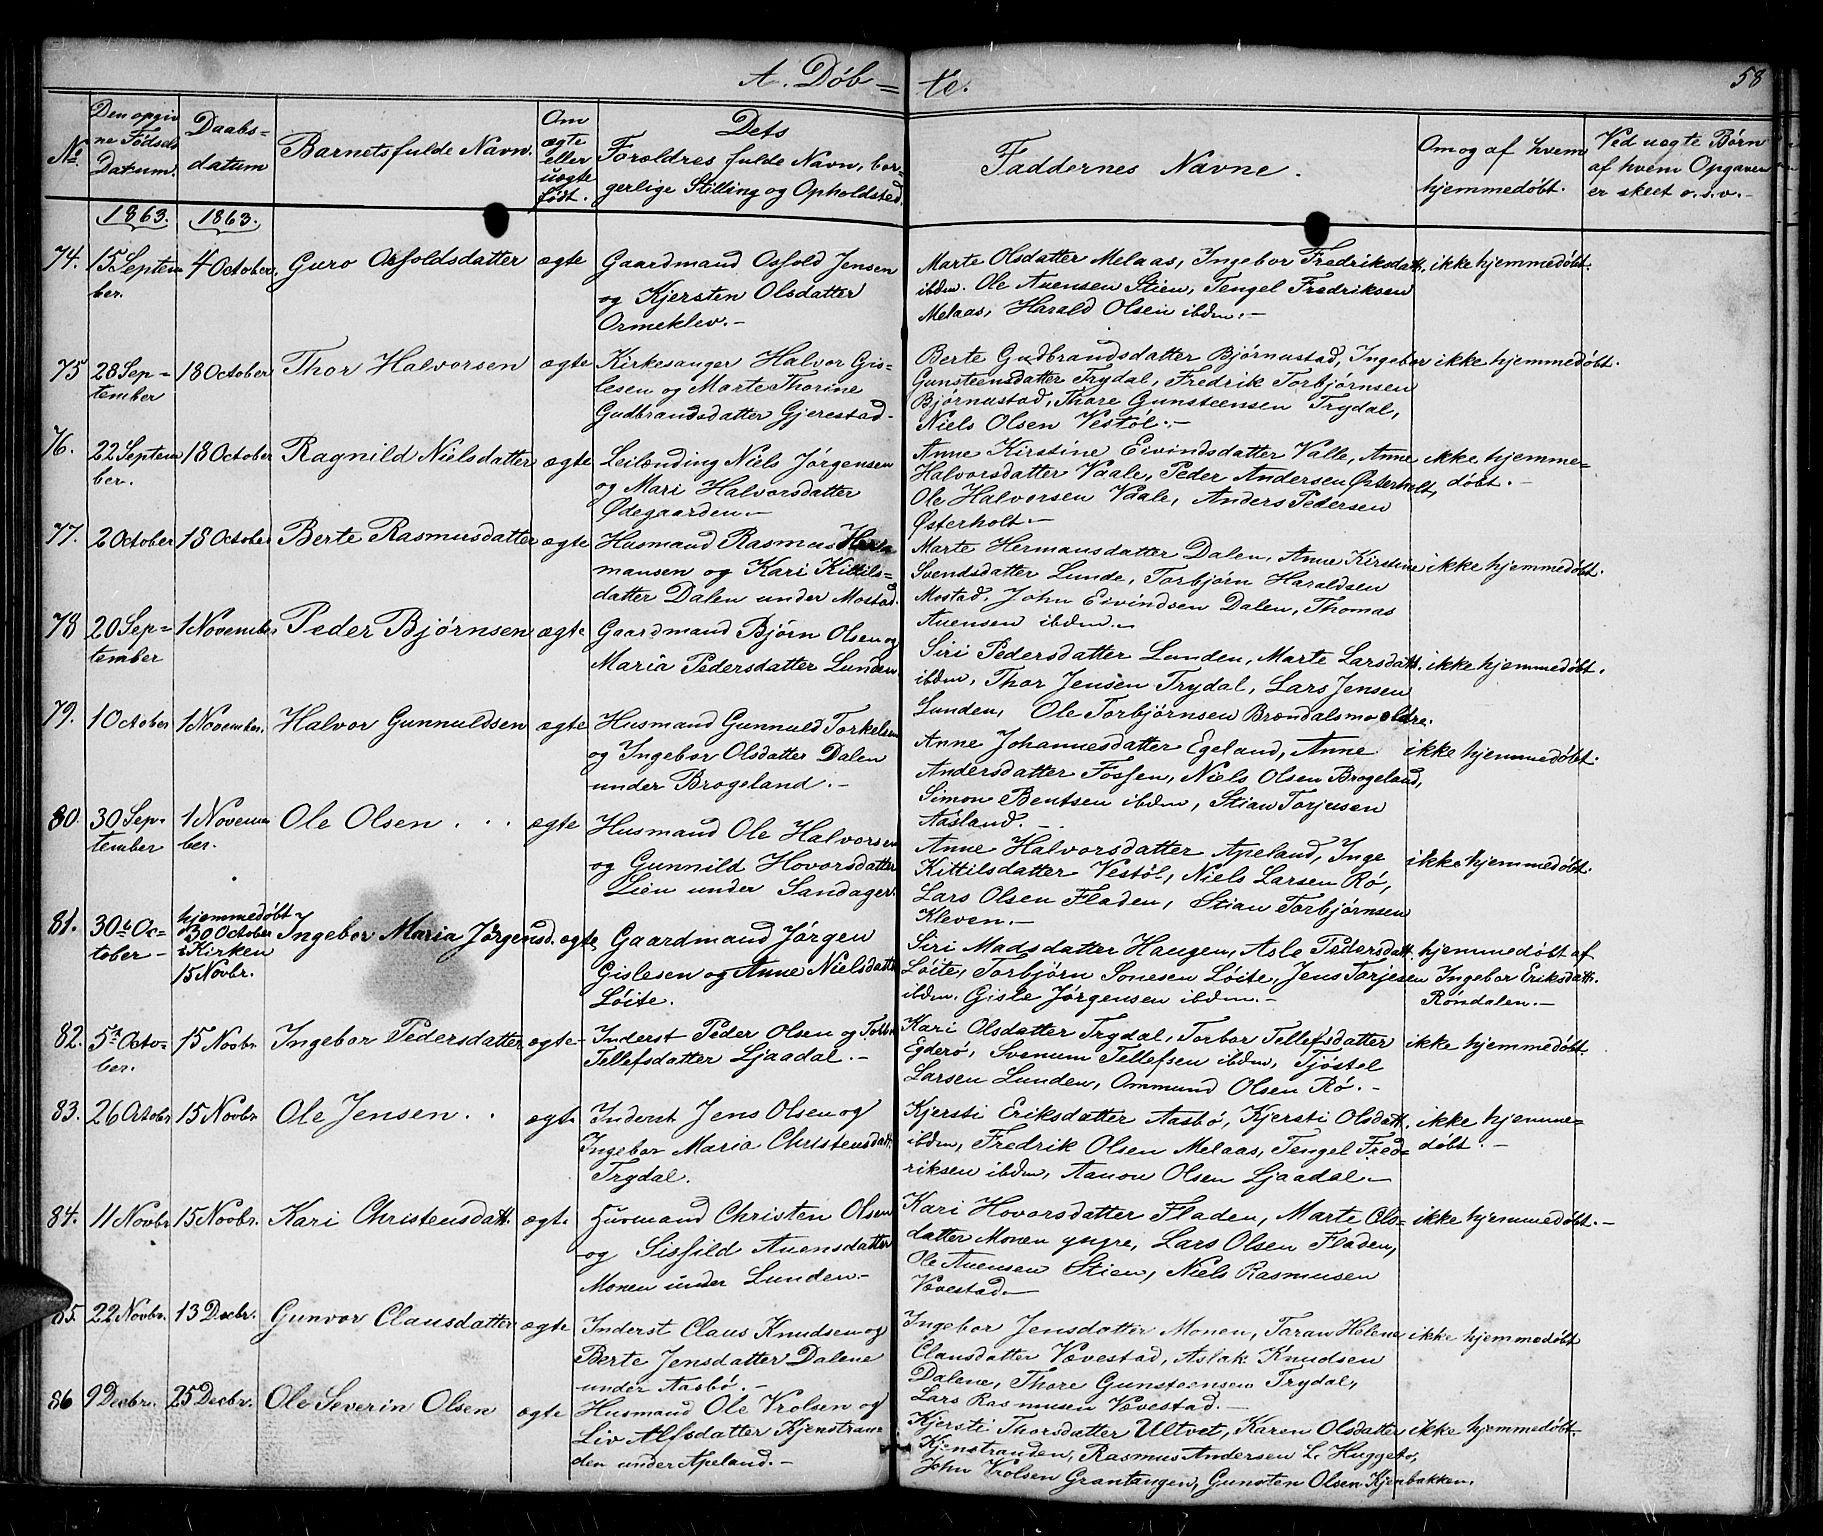 A. Döb= te.
58
No.
Den opgiv
ne Fødsels
Datum.
Daabs=
datum
Barnets fulde Navn.
Om
ægte
eller
uægte
født.
Dets
Forældres fulde Navn, bor=
gerlige Stilling og Opholdsted.
Faddernes Navne.
Om og af hvem
hjemmedøbt.
Ved uægte Børn
af hvem Opgaven
er skeet o.s.v.-
1863.
1863.
74. 15 Septem
ber.
4 October.
Guro Osfoldsdatter
ægte
Gaardmand Osfold Jensen
og Kjersten Olsdatter
Ormeklev.-
Marte Olsdatter Melaas, Ingebor Fredriksdatt.
ibdm. Ole Auensen Stien, Tengel Fredriksen
Melaas, Harald Olsen ibdm.-
ikke hjemmedøbt.
75 28 Sep=
tember
18 October
Thor Halvorsen
ægte
Kirkesanger Halvor Gis=
lesen og Marte Thorine
Gudbrandsdatter Gjerestad.
Berte Gudbrandsdatter Bjørnustad, Ingebor
Gunsteensdatter Trydal, Fredrik Torbjørnsen
Bjørnustad, Thore Gunsteensen Trydal,
Niels Olsen Vestøl.-
ikke hjemmedøbt.
76. 22 Septem
ber.
18 October
Ragnild Nielsdatter
ægte
Leilænding Niels Jørgensen
og Mari Halvorsdatter
Ødegaarden.-
Anne Kirstine Eivindsdatter Valle, Anne
Halvorsdatter Vaale, Peder Andersen Østerholt,
Ole Halvorsen Vaale, Anders Pedersen
Østerholt.-
ikke hjemme=
døbt.-
77. 2 October
18 October
Berte Rasmusdatter
ægte
Husmand Rasmus Her
mansen og Kari Kittils=
datter Dalen under Mostad.
Marte Hermansdatter Dalen, Anne Kirstine
Svendsdatter Lunde, Torbjørn Haraldsen
Mostad, John Eivindsen Dalen, Thomas
Auensen ibdm.-
ikke hjemmedøbt.
78 20 Sep=
tember
1 November
Peder Bjørnsen
ægte
Gaardmand Bjørn Olsen og
Maria Pedersdatter Lunden
Siri Pedersdatter Lunden, Marte Larsdatt.
ibdm, Thor Jensen Trydal, Lars Jensen
Lunden, Ole Torbjørnsen Brændalsmo ældre.
ikke hjemmedøbt.
79. 1 October
1 November.
Halvor Gunnuldsen
ægte
Husmand Gunnuld Torkelsen
og Ingebor Olsdatter Dalen
under Brogeland.-
Anne Johannesdatter Egeland, Anne
Andersdatter Fossen, Niels Olsen Brogeland,
Simon Bentsen ibdm, Stian Torjusen
Aasland.-
ikke hjemmedøbt.
80. 30 Sep.
tember
1 Novem
ber.
Ole Olsen . . .
ægte
Husmand Ole Halvorsen
og Gunnild Hovorsdatter
Lien under Sandager.
Anne Halvorsdatter Apeland, Inge
Kittilsdatter Vestøl, Niels Larsen Rø,
Lars Olsen Fladen, Stian Torbjørnsen
Kleven.-
ikke hjemmedøbt.
81. 30te Oc=
tober-
hjemmedøbt
30 October
i Kirken
15 Novbr.
Ingebor Maria Jørgensd.
ægte
Gaardmand Jørgen
Gislesen og Anne Nielsdatte
Löite.
Siri Madsdatter Haugen, Asle Pedersdatt.
Löite, Torbjörn Sonesen Löite, Jens Torjesen
ibdm. Gisle Jørgensen ibdm.-
hjemmedøbt af
Ingebor Eriksdatt.
Røndalen.-
82. 5te Octo=
ber.
15 Novbr
Ingebor Pedersdatter
ægte-
Inderst Peder Olsen og Torbor
Tellefsdatter Ljaadal.-
Kari Olsdatter Trydal, Torbor Tellefsdatter
Egderö, Svenum Tellefsen ibdm, Tjöstel
Larsen Lunden, Ommund Olsen Rö.-
ikke hjemmedøbt.
83. 26 Octobr
15 Novbr
Ole Jensen . .
ægte
Inderst Jens Olsen og
Ingebor Maria Christensdatt.
Trydal.
Kjersti Eriksdatter Aasbø, Kjersti Olsdatt.
ibdm, Fredrik Olsen Melaas, Tengel Fred=
riksen ibdm, Aanon Olsen Ljaadal.-
ikke hjemme=
døbt.-
84. 11 Novbr
15 Novbr.
Kari Christensdatt.
ægte
Husmand Christen Olsen
og Sisfild Auensdatter
Monen under Lunden-
Kari Hovorsdatter Fladen, Marte Ols=
datter Monen yngre, Lars Olsen Fladen,
Ole Auensen Stien, Niels Rasmusen
Vævestad.-
ikke hjemmedøbt.-
85. 22 Novbr.
13 Decbr.
Gunvor Clausdatter
ægte
Inderst Claus Knudsen og
Berte Jensdatter Dalene
under Aasbø.-
Ingebor Jensdatter Monen, Taran Helene
Clausdatter Vævestad, Aslak Knudsen
Dalene, Thore Gunsteensen Trydal,
Lars Rasmusen Vævestad.-
ikke hjemmedøbt
86 9 Decbr.
25 Decbr.
Ole Severin Olsen
ægte
Husmand Ole Vrolsen og
Liv Alfsdatter Kjenstran
den under Apeland.-
Kjersti Thorsdatter Ultvet, Karen Olsdatter
Kjenstranden, Rasmus Andersen L. Huggebo,
John Vrolsen Grantangen, Gunsten Olsen Kjenbakken.
ikke hjemmedøbt.